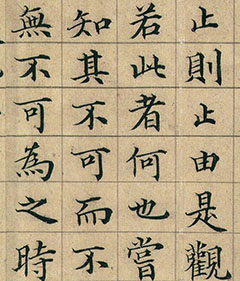 止則止由是觀
若此者何也嘗
知其不可而不
無不可為之時